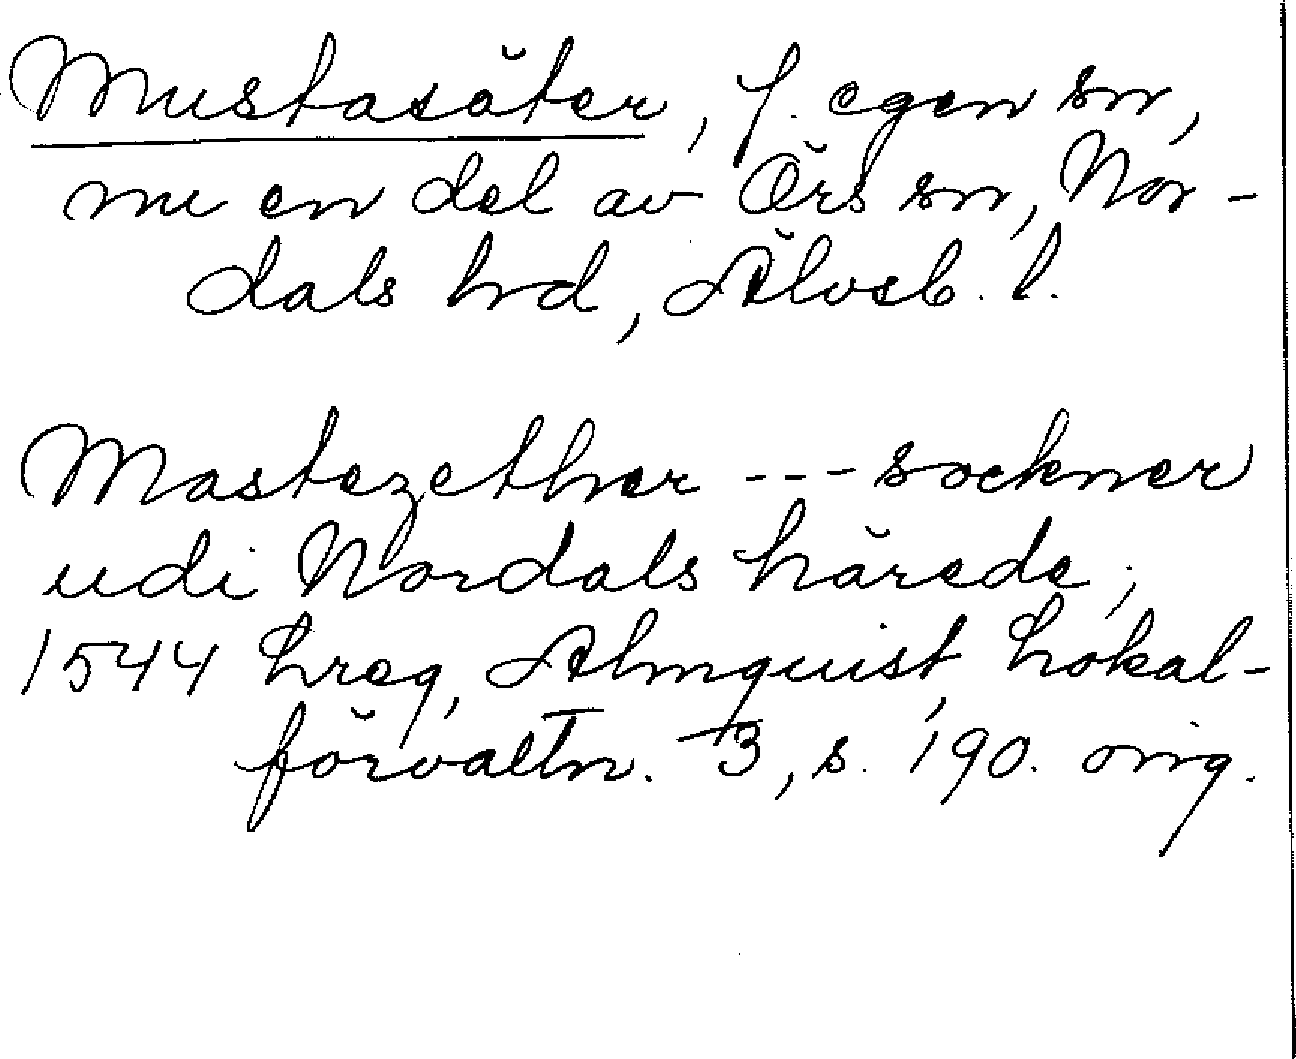 Mustasäter, f. egen sn,
nu en del av Örs sn, Nor-
dals hrd, Älvsb. l.
Mastezether --- sockner
udi Nordals härede;
1544 Lreg, Almquist, Lokal-
förvaltn. 3, s. 190. orig.